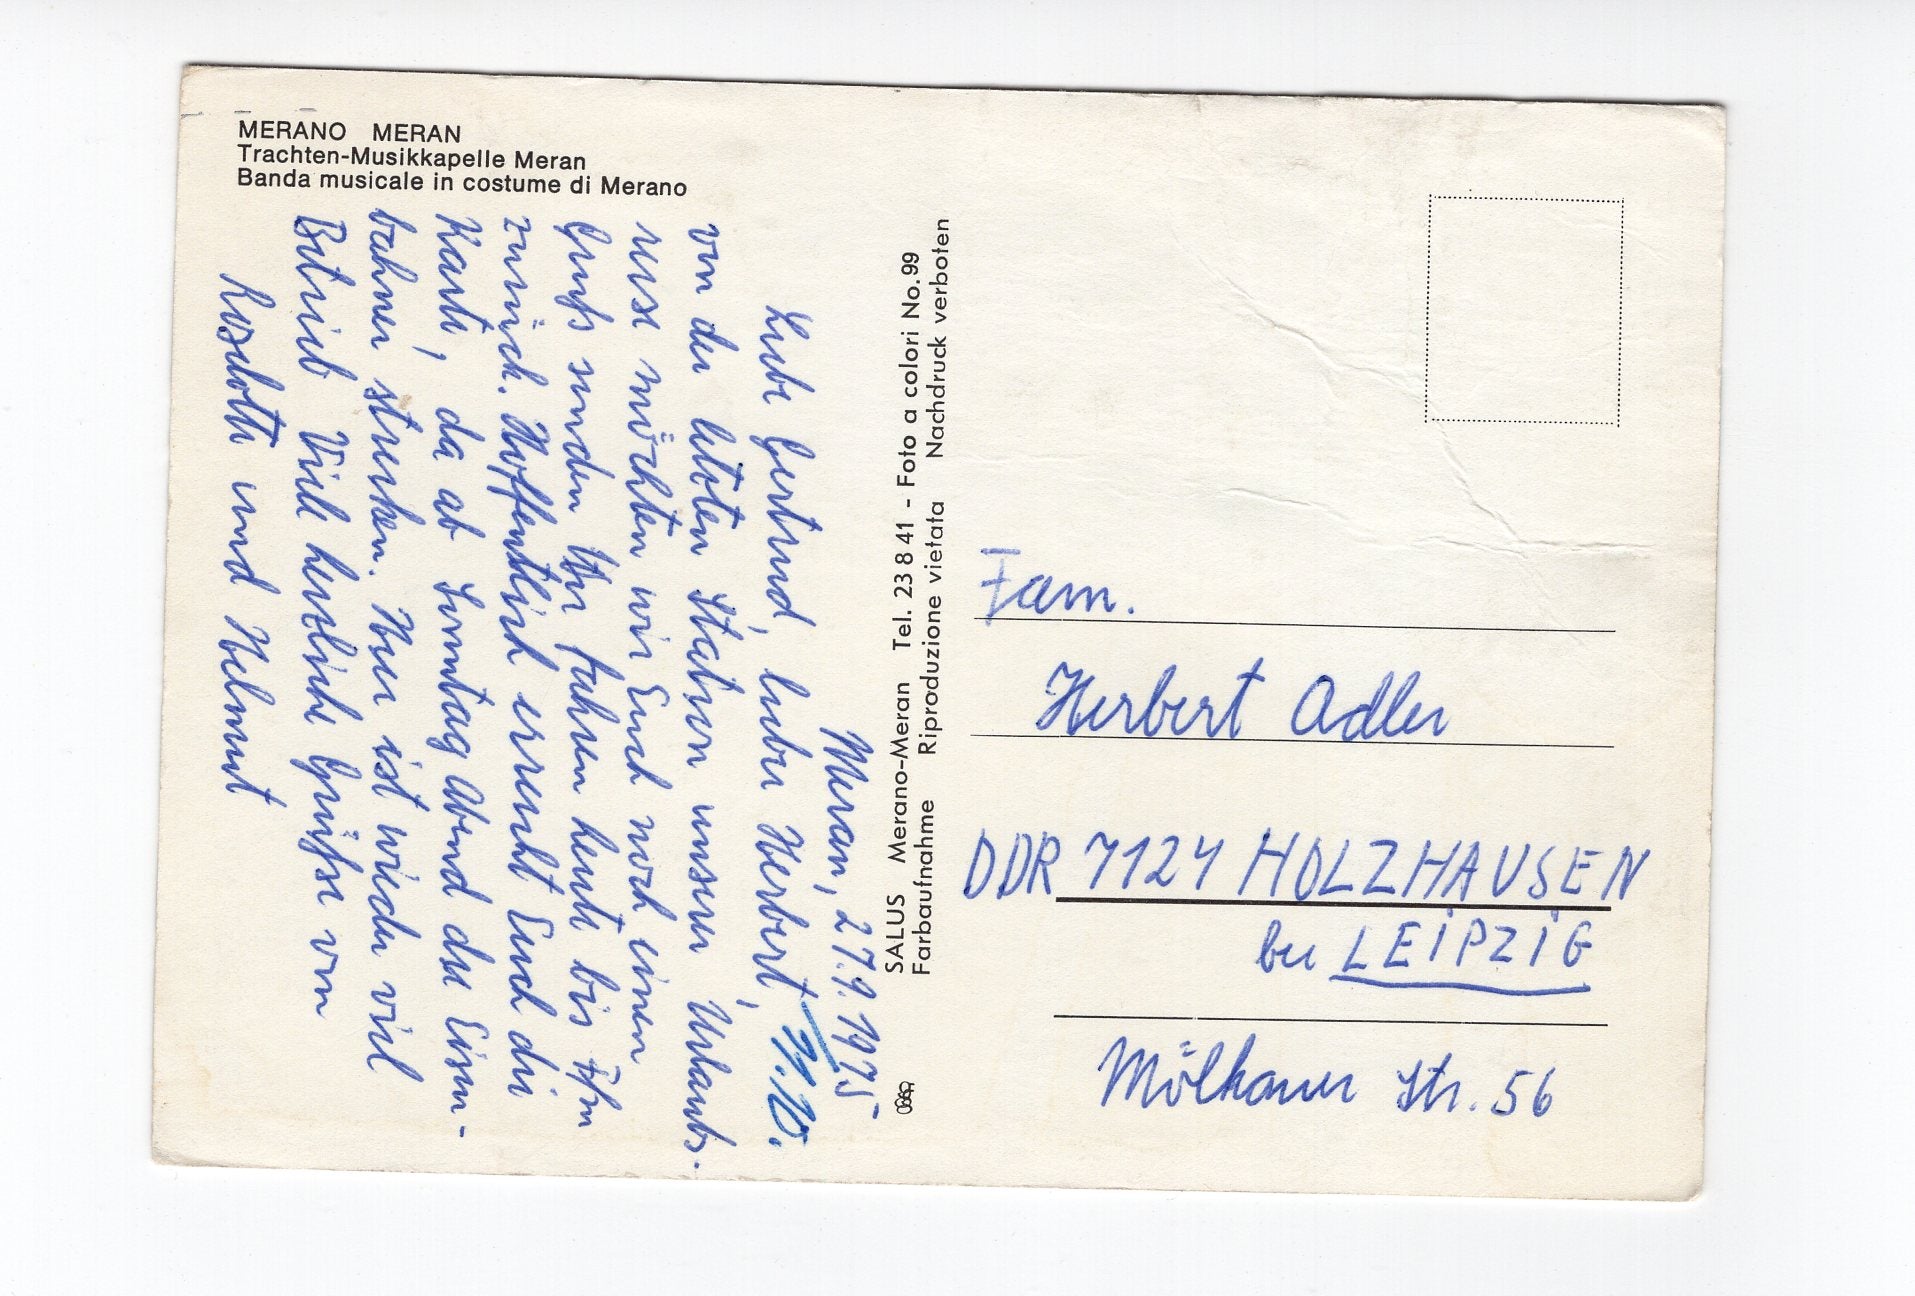 MERANO MERAN
Trachten-Musikkapelle Meran
Banda musicale in costume di Merano
Meran, 27.9.1975
Liebe Gertrud, lieber Herbert,
von der letzten Station unserer Urlaubs-
reise möchten wir Euch noch einen
Gruß senden. Wir fahren heute bis
zurück. Hoffentlich erreicht Euch die
Karte, da ab Sonntag Abend die Eisen-
bahner streiken. Hier ist wieder viel
Betrieb. Viele herzliche Grüße von
Roselotte und Helmut
SALUS Merano-Meran Tel. 23 8 41 - Foto a colori No. 99
Farbaufnahme Riproduzione vietata Nachdruck verboten
Fam.
Herbert Adler
DDR 7124 HOLZHAUSEN
bei LEIPZIG
Mölkauer Str. 56